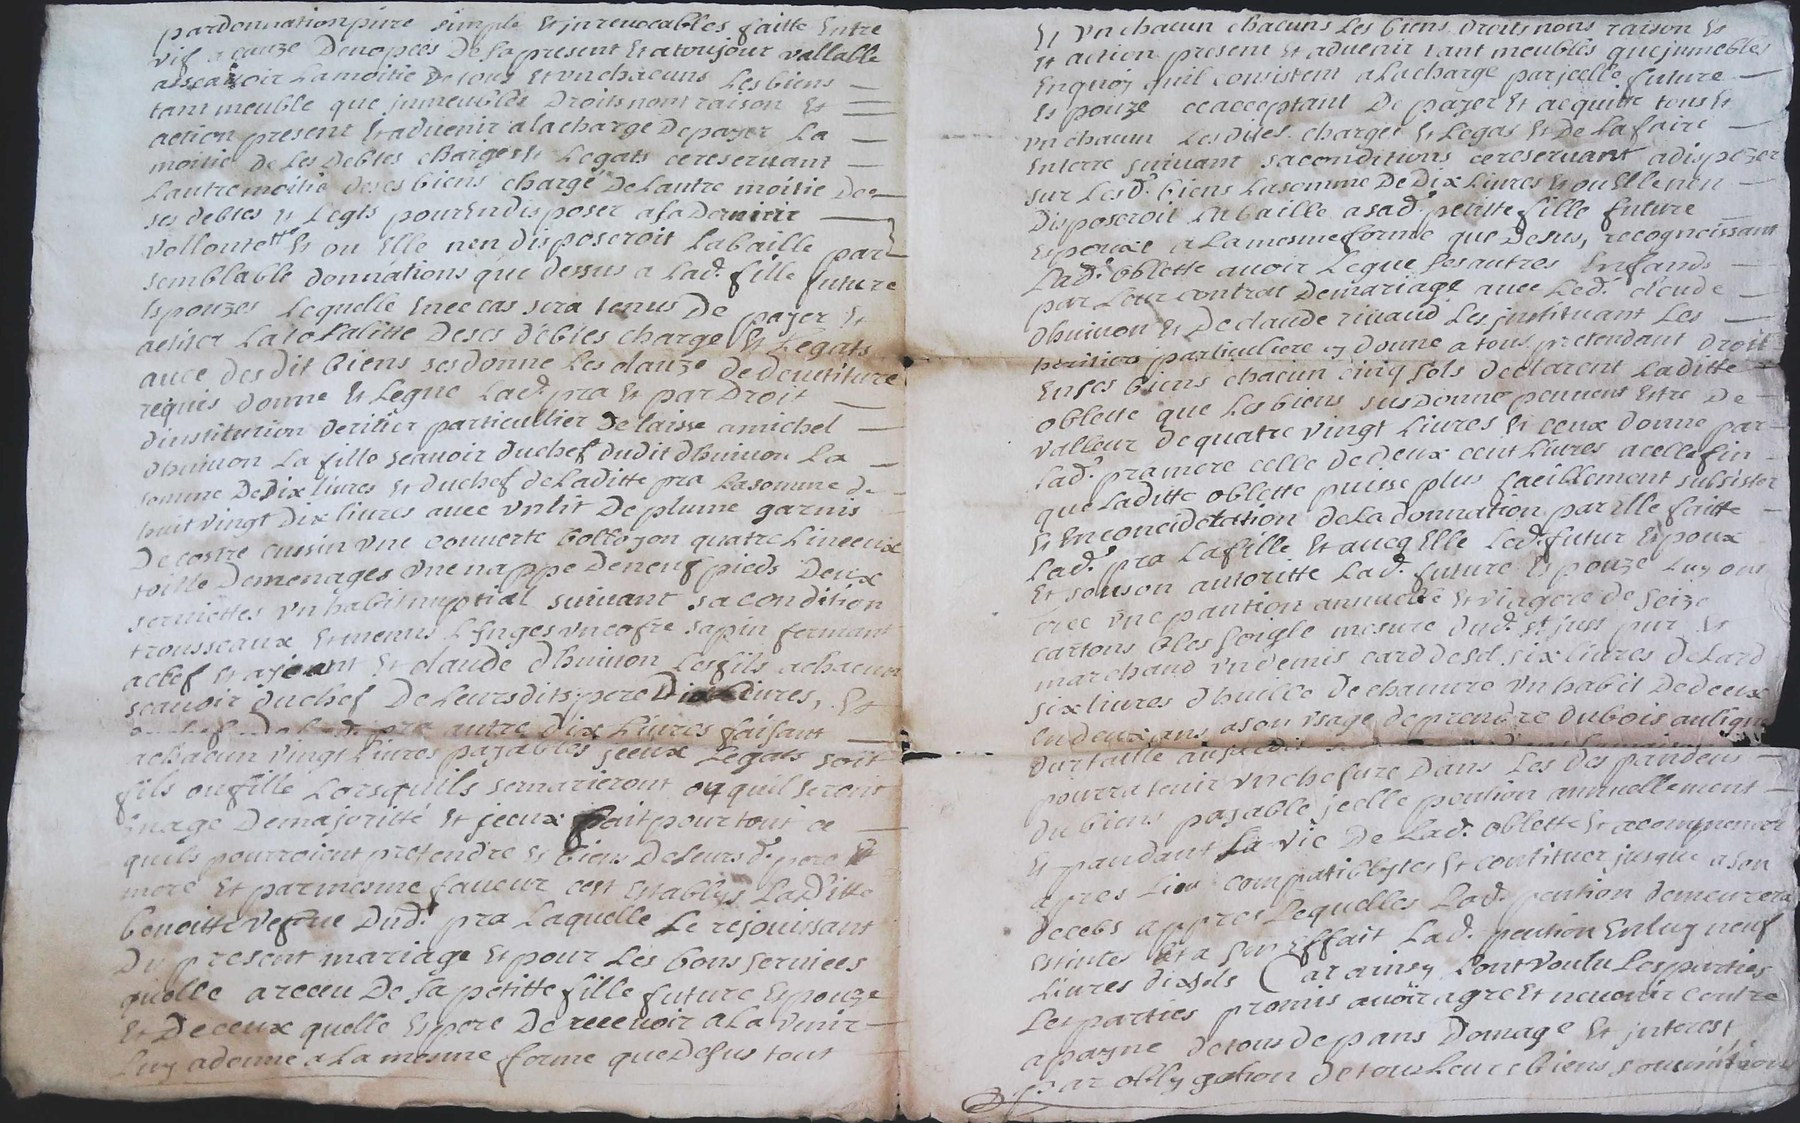 par donnation pure simple et jnrevocables faitte entre
vif a cauze de nopces de sa present et a toujour vallable
ascavoir la moitie de tous et vn chacuns les biens
tant meuble que jmeubles droits nont raison et
action present et advenir a la charge de payer la
moitie de les debtes charges et legats ce reservant
l'autre moitie de ses biens charge de l'autre moitie de
ses debtes et legts pour en disposer a sa derniere
vollonté et ou elle nen disposeroit la baille par
semblable donnations que dessus a lad. fille future
espouzes lequelle en ce cas sera tenus de payer et
la totalitte de ses debtes charge et legats
avec desdit biens ses donne les clauze de devetiture
requis donne et legue lad. pra et par droit
dinstitution deritier particullier delaisse a michel
dhuinon la fille scavoir du chef dudit dhuinon la
somme de dix livres et du chef de laditte pra la somme de
huit vingt dix livres avec vn lit de plume garnis
de costre cussin vne couverte quatre linceux
toille de menages vne nappe de neuf pieds deux
serviettes vn habit nuptial suivant sa condition
trousseaux et menus linges vn cofre sapin fermant
a clef et et claude dhuinon les fils a chacun
scavoir du chef de leursdits pere dix livres, et
pra autre dix livres faisant
a chacun vingt livres payables jceux legats soit
fils ou fille lorsquils se marieront ou quil seront
en age de majoritté et jceux fait pour tout ce
quils pourroient pretendre et biens de leurs d. pere et
mere et par mesme faveur cest establys laditte
benoitte vefve dud. pra laquelle se rejouissant
du present mariage et pour les bons services
quelle a receu de sa petitte fille future espouze
et de ceux quelle espere de recevoir a la venir
luy a donne a la mesme forme que desus tout
et vn chacun chacuns les biens droits nons raison et
et action present et advenir tant meublés que jmeubles
en quoy quil consistent a la charge par jcelle future
espouze ce acceptant de payer et acquitte tous et
vn chacun lesdites charges et legas et de la faire
enterre suivant sa conditions ce reservant a disposer
sur lesd. biens la somme de dix livres et ou elle nen
disposeroit la baille a sad. petitte fille future
espouze a la mesme forme que desus, recognoissant
lad. oblette avoir legue ses autres enfants
par leur contrat de mariage avec led. claude
dhuinon et de claude rivaud les jnstituant les
heritiers particuliere et donne a tous pretendant droit
en ses biens chacun cinq sols declarent laditte
oblette que les biens sus donne peuvens estre de
valleur de quatre vingt livres et ceux donne par
lad. pra mere celle de deux cent livres a celle fin
que laditte oblette puisse plus facillement subsister
et en concideration de la donnation par elle faitte
lad. pra la fille et avecq elle led. futur espoux
et sous son autoritte lad. future espouze luy ont
cree vne pantion annuelle et viagere de seize
cartons bles soigle mesure dud. st just pur et
marchand vn demis card de sel six livres de lard
six livres dhuille de chanvre vn habit de deux
en deux ans a son vsage de prendre du bois antique
dur taille
pourra tenir vn chefure dans les des pandens
du biens payable jcelle pention annuellement
et pandant la vie de lad. oblette et a commencer
apres lieu compatiblyter et contituer jusque a son
decebs appres lequelles lad. pention demeurera
estintes et a sur effait lad. pention evaluy neuf
livres dix sols Car ainsy lont voulu les parties
les parties promis avoir agre et ne venir contre
a payne de tous depans domage et jnterest,
par obbygation de tous leurs biens soumitions